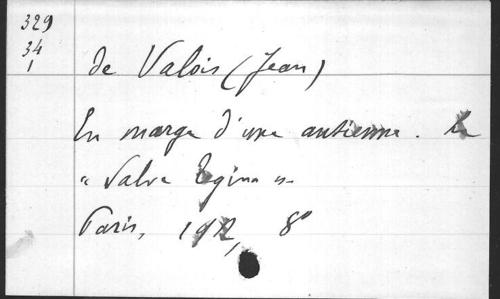 329
34
1
de Valois (Jean)
En marge d'une antienne. Le
"Salve Regina"
Paris, 1912, 8°